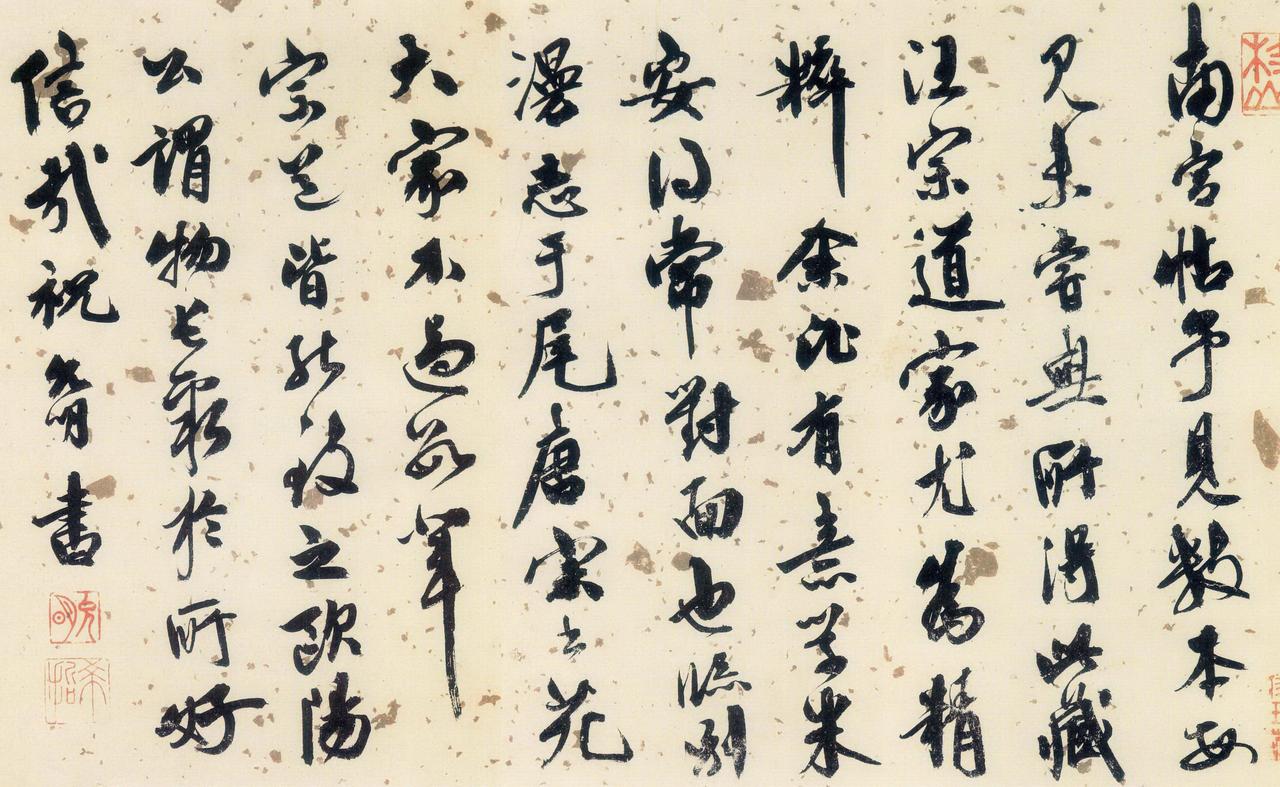 南宫帖予見数本每
見未嘗與所得此藏
汪宗道家尤為精
粹余比有意學米
安得常對面也臨別
漫志于尾唐宋書苑
大家不過數輩
宗道皆能致之歐陽
公謂物常聚於所好
信哉祝允明書